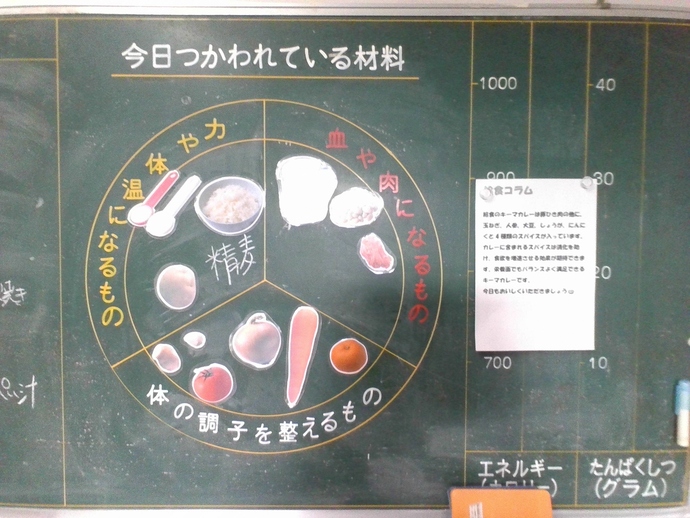 今日つかわれている材料
力や体温になるもの
血や肉になるもの
体の調子を整えるもの
精麦
1000
900
700
40
30
20
10
食コラム
給食のキーマカレーは豚ひき肉の他に、
玉ねぎ、人参、大豆、しょうが、にんに
くと4種類のスパイスが入っています。
カレーに含まれるスパイスは消化を助
け、食欲を増進させる効果が期待できま
す。栄養面でもバランスよく満足できる
キーマカレーです。
今日もおいしくいただきましょう
エネルギー
たんぱくしつ
(グラム)
焼き
汁